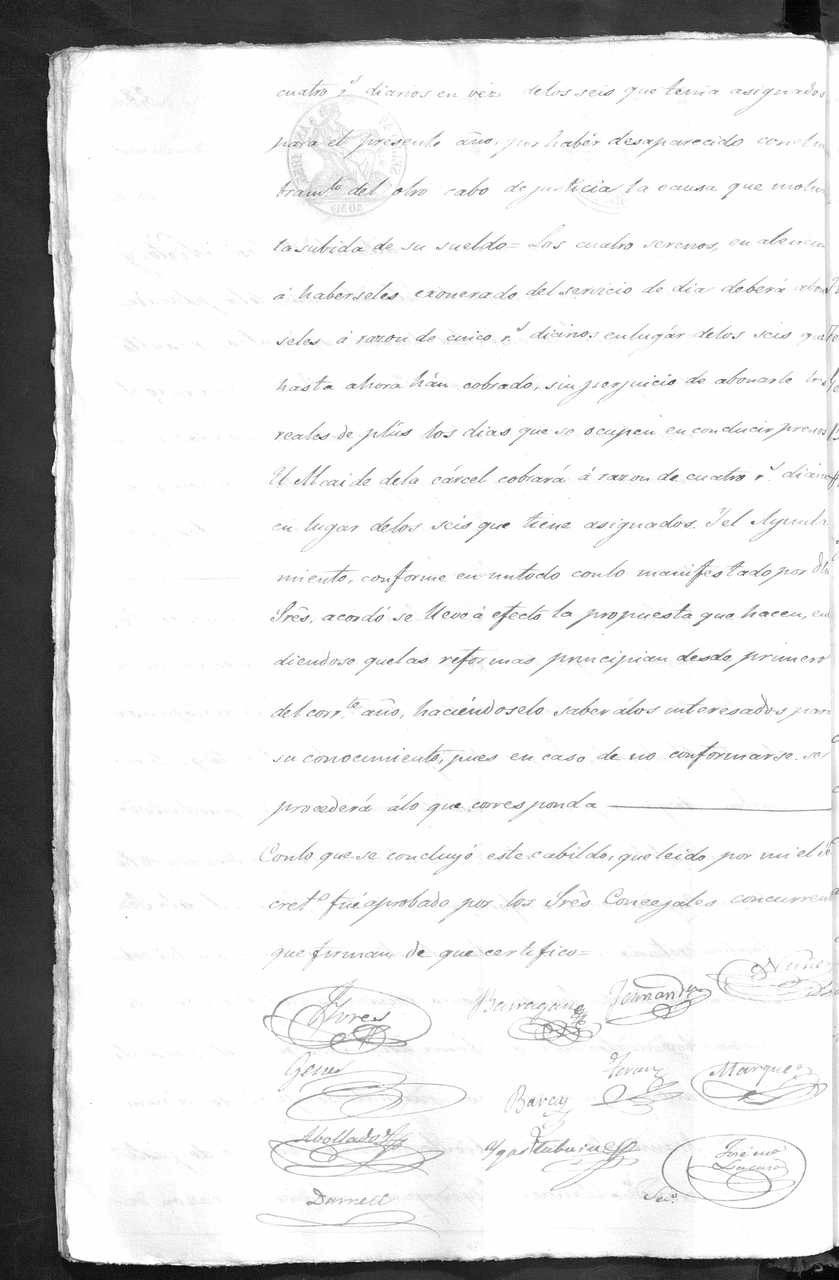 cuatro r.s diarios en véz de los seis que tenia asignados
para el presente año, por habér desaparecido con el
del otro cabo de justicia la causa que
la subida de su sueldo = Los cuatro serenos, en
á haberseles exonerado del servicio de dia deberá
seles á razon de cinco r.s diarios en lugár de los seis que
hasta ahora hán cobrado, sin perjuicio de abonarle tres
reales de plús los dias que se ocupen en conducir presos
El Alcaide de la cárcel cobrará á razon de cuatro r.s
en lugar de los seis que tiene asignados. Y el Ayunta
miento, conforme en un todo con lo manifestado por
Srês, acordó se lleve á efecto la propuesta que hacen, en
diendose que las reformas principian desde primero
del corr.te año, haciéndoselo saber á los interesados para
su conocimiento, pues en caso de no conformarse se
procederá á lo que corresponda
Con lo que se concluyó este cabildo, que leido por mi el
cret.o fué aprobado por los Srês Concejales concurren
que firman, de que certifico =
Flores Barragan Fernandez Nuñez
Marquez
Barea
Abollado
Darnell
Sec.o